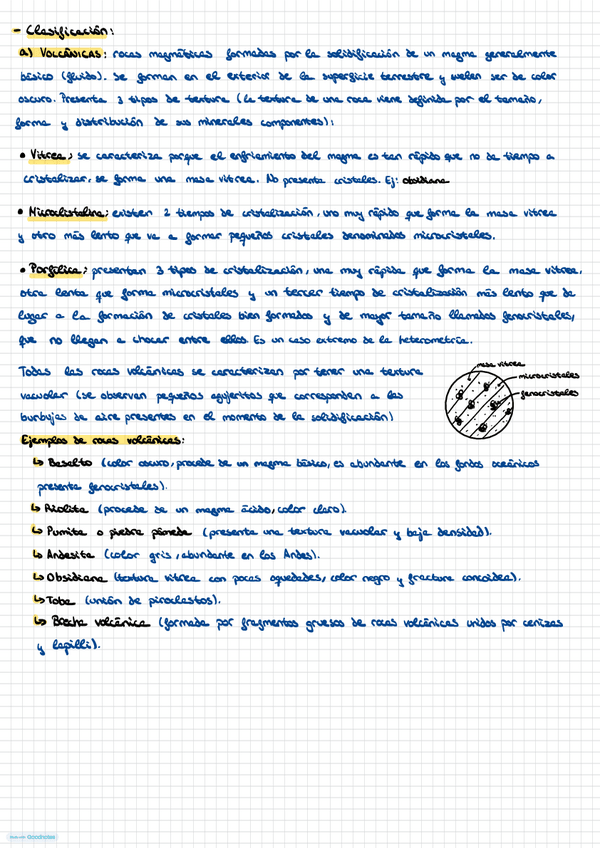 - Clasificación:
a) VOLCÁNICAS: rocas magmáticas formadas por la solidificación de un magma generalmente
básico (fluido). Se forman en el exterior de la superficie terrestre y suelen ser de color
oscuro. Presenta 3 tipos de textura (La textura de una roca viene definida por el tamaño,
forma y distribución de sus minerales componentes):
• Vitrea: se caracteriza porque el enfriamiento del magma es tan rápido que no da tiempo a
cristalizar, se forma una masa vitrea. No presenta cristales. Ej: obsidiana
• Microcristalina: existen 2 tiempos de cristalización, uno muy rápido que forma la masa vitrea
y otro más lento que va a formar pequeños cristales denominados microcristales.
• Porfilica: presentan 3 tipos de cristalización, una muy rápida que forma la masa vitrea,
otra lenta que forma microcristales y un tercer tiempo de cristalización más lento que da
lugar a la formación de cristales bien formados y de mayor tamaño llamados fenocristales,
que no llegan a chocar entre ellos. Es un caso extremo de la heterometría.
Todas las rocas volcánicas se caracterizan por tener una textura
vacuolar (se observan pequeños agujeritos que corresponden a las
burbujas de aire presentes en el momento de la solidificación)
masa vitrea
microcristales
fenocristales
Ejemplos de rocas volcánicas:
↳ Basalto (color oscuro, procede de un magma básico, es abundante en los fondos oceánicos
presenta fenocristales).
↳ Riolita (procede de un magma ácido, color claro).
↳ Pumita o piedra pómede (presenta una textura vacuolar y baja densidad).
↳ Andesita (color gris, abundante en los Andes).
↳ Obsidiana (textura vitrea con pocas oquedades, color negro y fractura concoidea).
↳ Toba (unión de piroclastos).
↳ Brecha volcánica (formada por fragmentos gruesos de rocas volcánicas unidos por cenizas
y lapilli).
Goodnotes